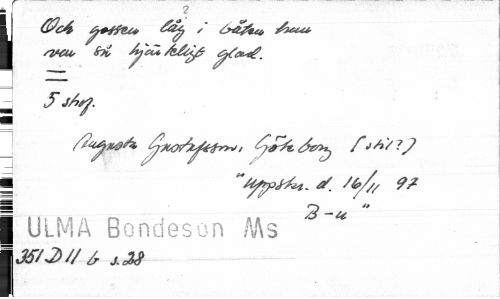 ?
Och gossen låg i båten han
var så hjärtligt glad.
5 strof.
Augusta Gustafsson, Göteborg (stil?)
"Uppskr. d. 16/11 97
B-n"
ULMA Bondeson Ms
351 D 11 b s.28